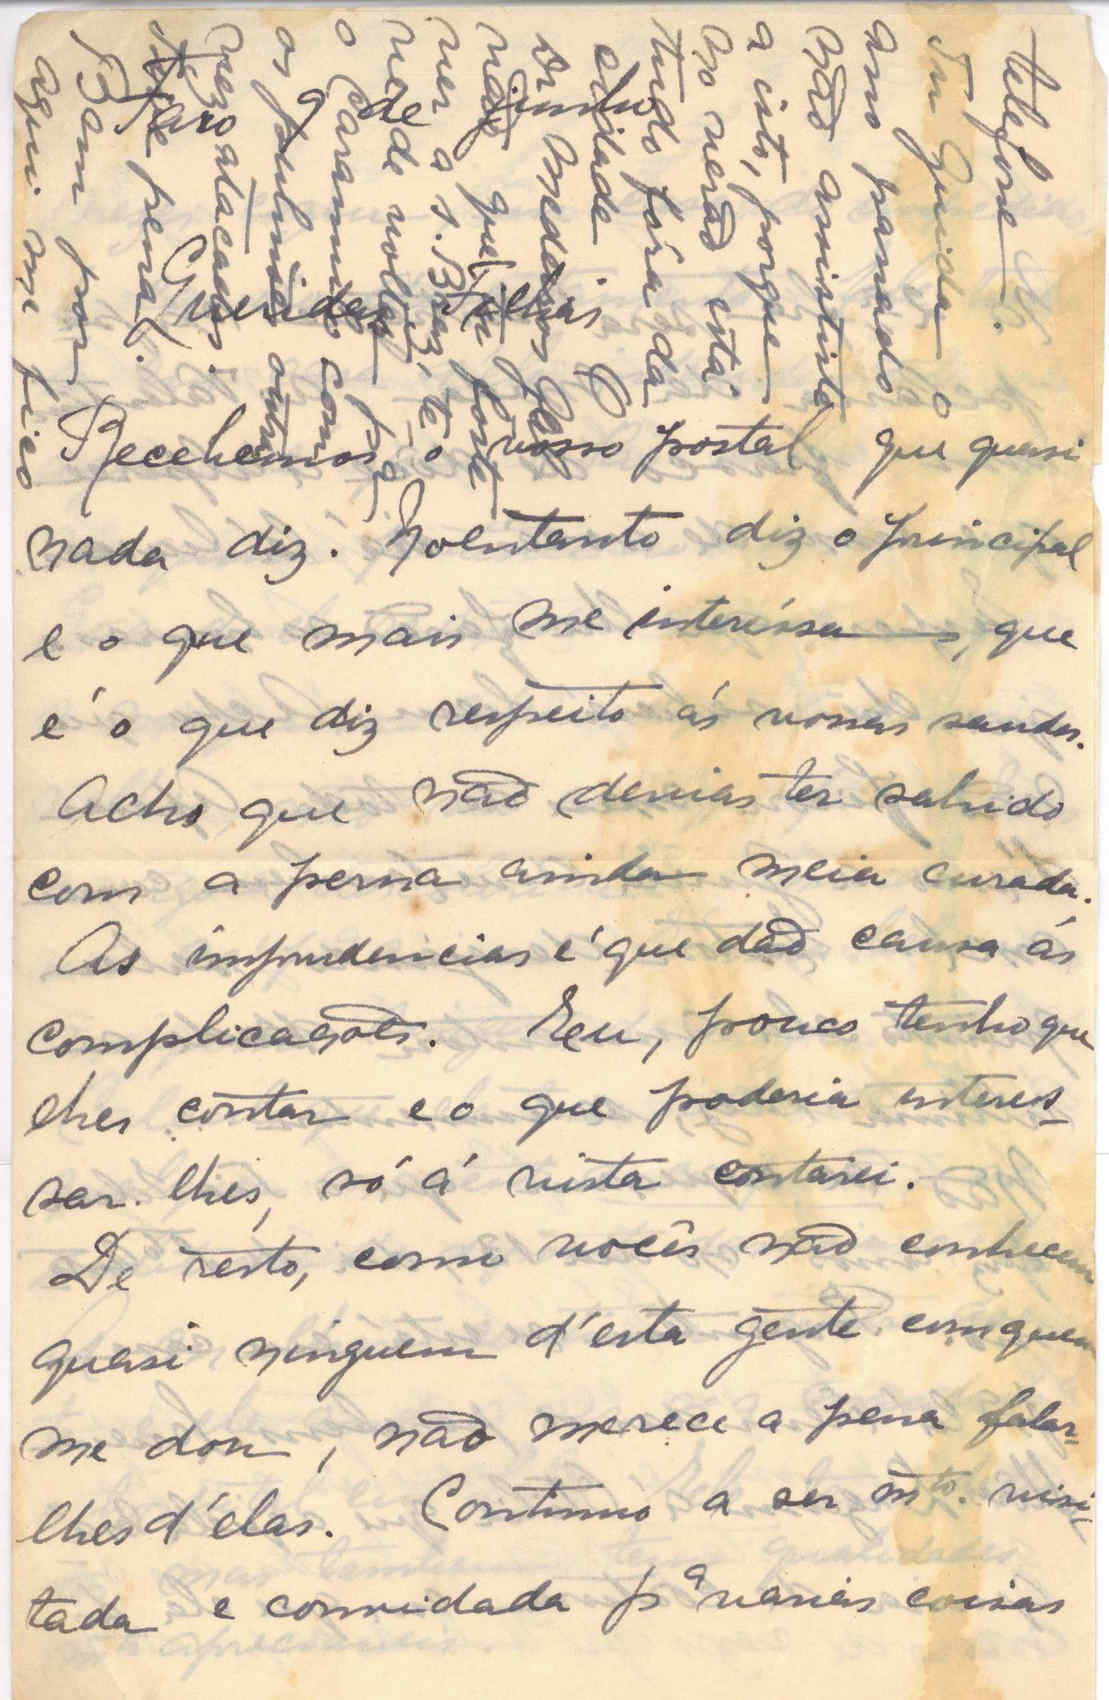 Faro 9 de junho
Queridas Filhas
Recebemos o vosso postal que quasi
nada diz. Noentanto diz o principal
e o que mais me interéssa, que
é o que diz respeito ás vossas saudes.
Acho que não devias ter sahido
com a perna ainda meia curáda.
As imprudencias é que dão causa ás
complicações. Eu, pouco tenho que
lhes contar e o que poderia interes-
sar-lhes, só á vista contarei.
De resto, como vocês não conhecem
quasi ninguem d'esta gente com quem
me dou, não merece a pena falar-
lhes d'élas. Continuo a ser mto. visi-
tada e convidada pª varias coisas
telefone.
Tu Guida o
ano passado
não assististe
a isto, porque
no verão está
tudo fóra da
cidade
não que fosse
ver a S. Braz,
de volta
o Caramulo com
os pulmões
atacados.
Que pena!
Bom por
aqui me fico